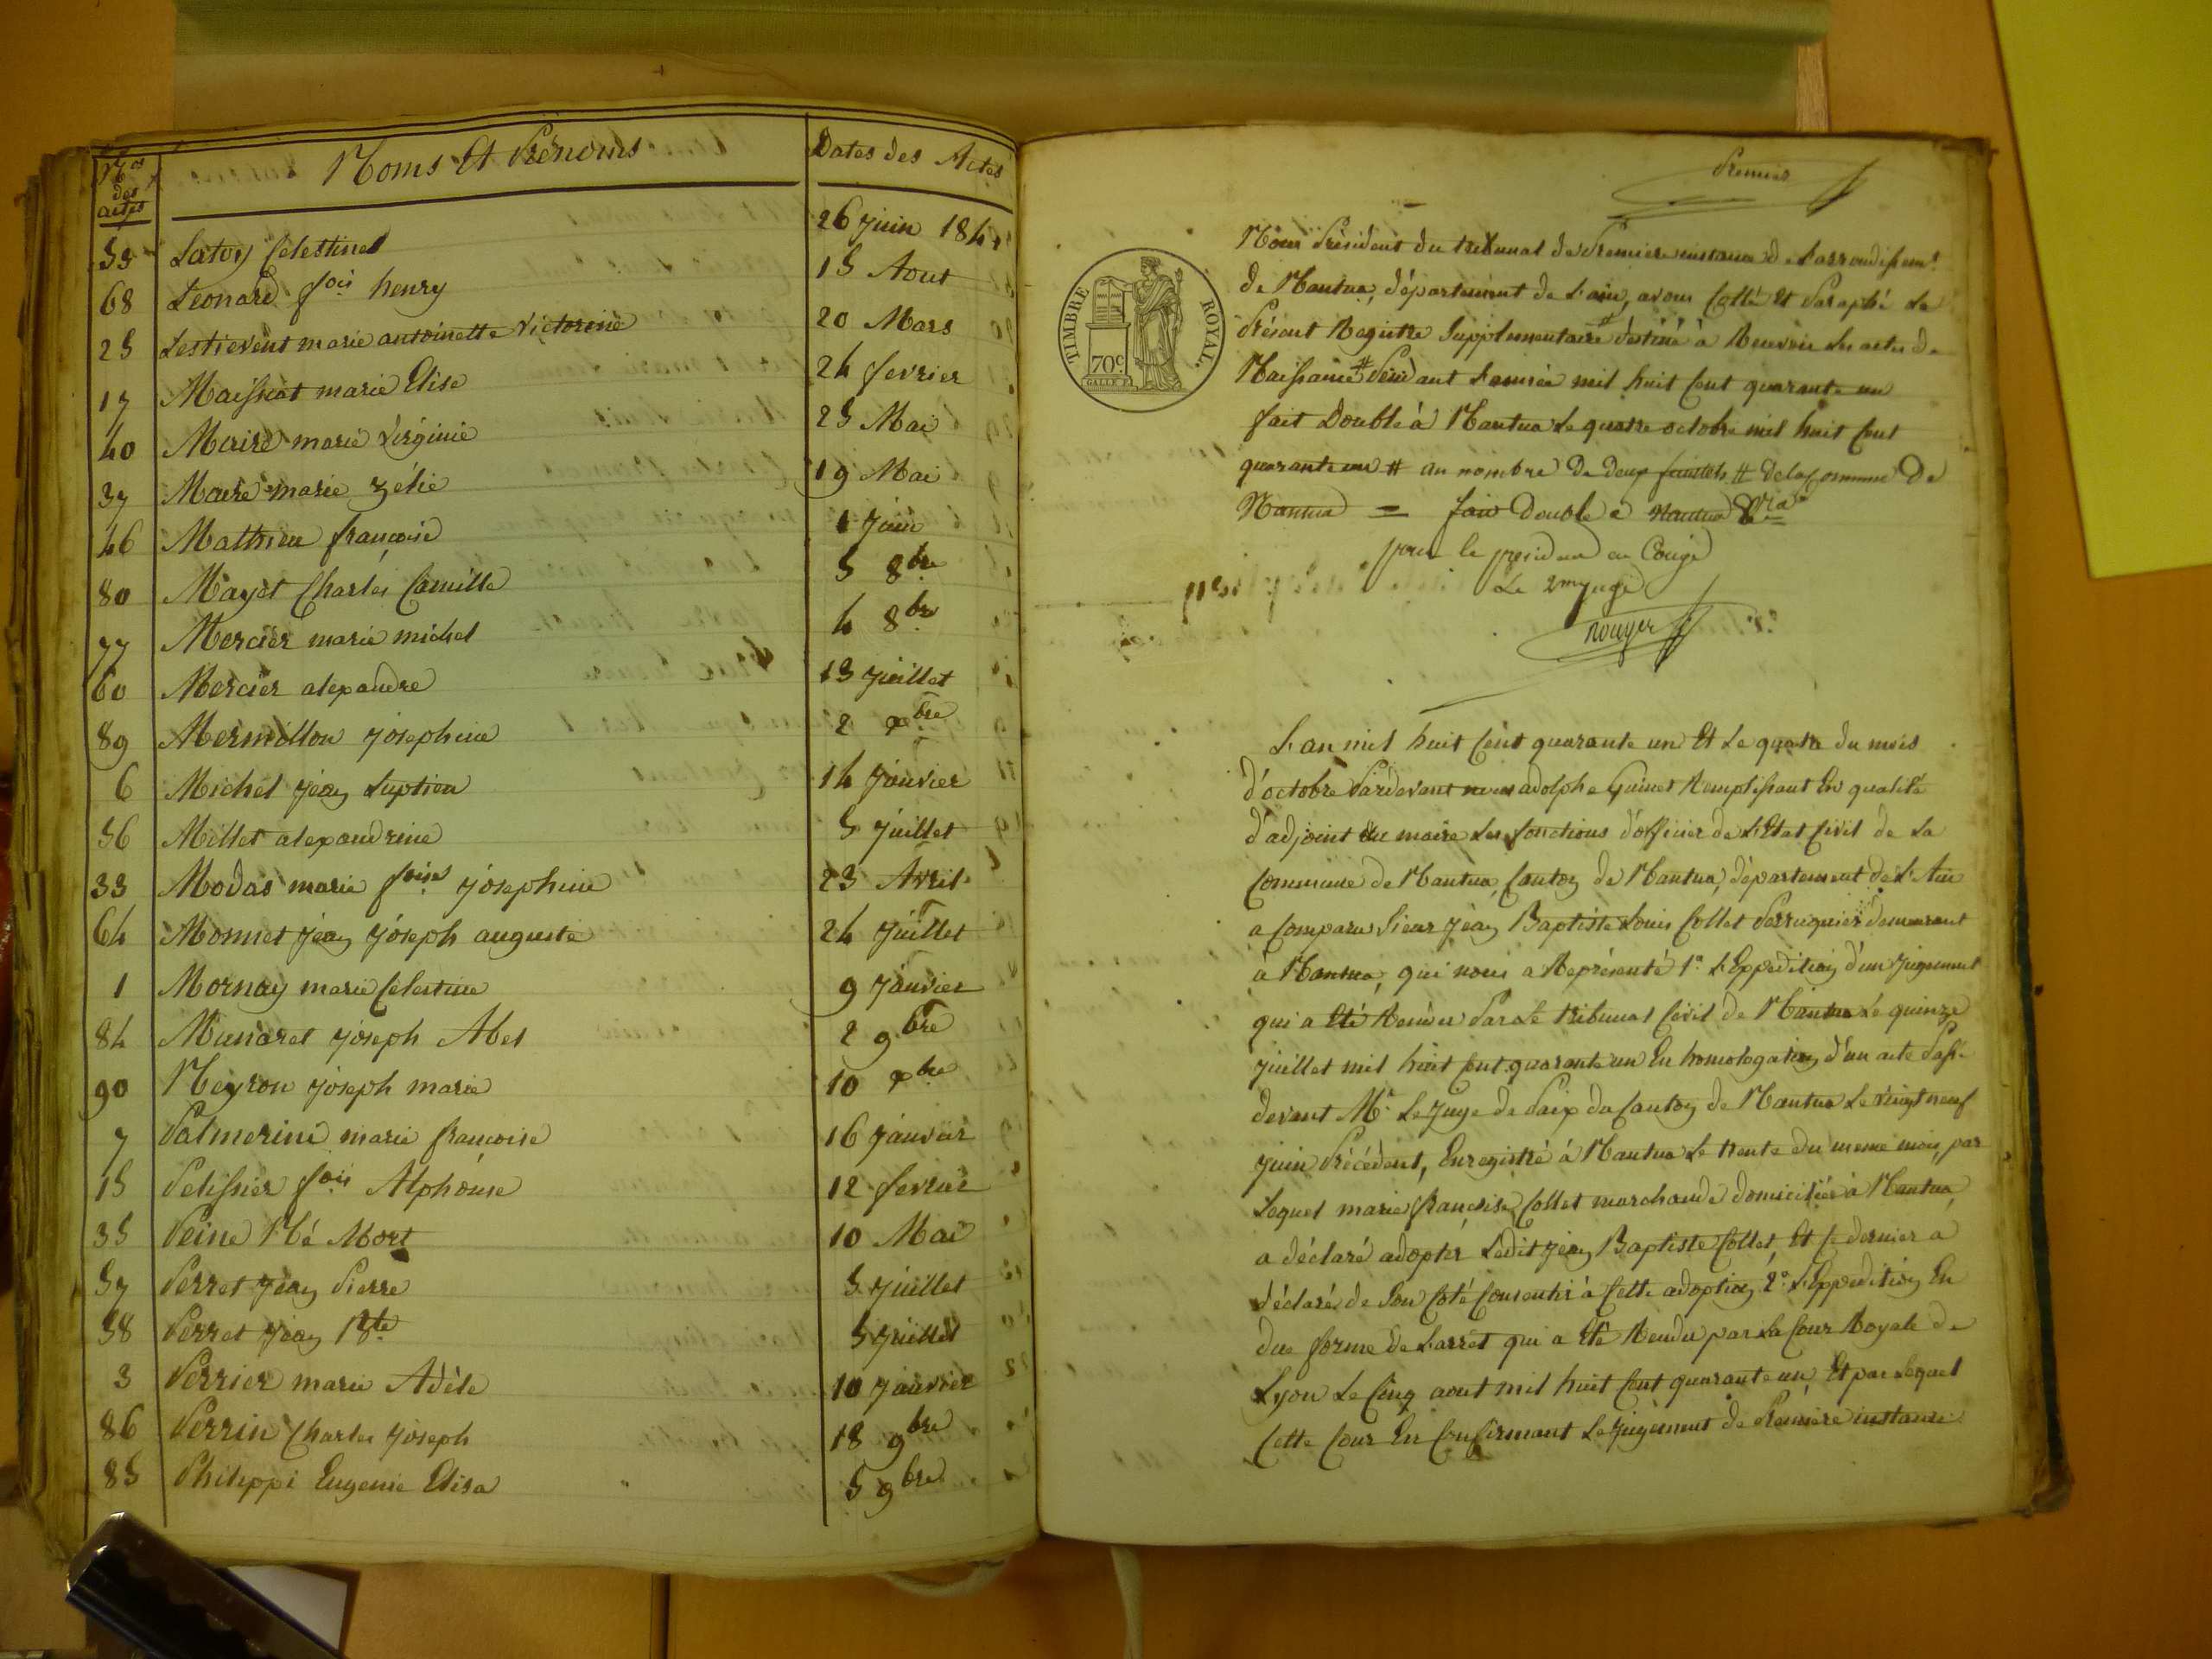 Nos des actes Noms Et Prénoms Dates des Actes
53 Latoy Celestine 26 juin 1841
68 Leonard fois henry 15 Aout
25 Lestievent marie antoinette victorine 20 Mars
17 Maissiat marie Elise 24 fevrier
40 Maire marie Virginie 25 Mai
37 Maire marie zélie 19 Mai
46 Mathieu francoise 1 juin
80 Mayet Charles Camille 5 8bre
77 Mercier marie michel 4 8bre
60 Mercier alexandre 13 juillet
89 Mermillon josephine 2 xbre
6 Michel jean 14 janvier
56 Millet alexandrine 5 juillet
33 Modas marie foise josephine 23 Avril
64 Monnet jean joseph auguste 24 juillet
1 Mornay marie Celestine 9 janvier
84 Munaret joseph Abel 2 9bre
90 Neyron joseph marie 10 xbre
7 Palmerini marie francoise 16 janvier
15 Pelissier fois Alphonse 12 fevrier
35 Peine Né Mort 10 Mai
57 Perret jean Pierre 5 juillet
58 Perret jean Bte 5 juillet
3 Perrier marie Adèle 10 janvier
86 Perrin Charles joseph 18 9bre
85 Philippi Eugenie Elisa 5 9bre
Premier
TIMBRE ROYAL.
70c.
Nous Président du tribunal de Premiere instance de L'arrondissemt
de Nantua, département de L'ain, avons Cotté Et Paraphé Le
Présent Registre Supplementaire # destiné à Recevoir Les actes de
Naissance # Pendant L'année mil huit Cent quarante un
fait Double à Nantua Le quatre octobre mil huit Cent
quarante un # au nombre de deux feuillets # de la Commune De
Nantua = fait Double a Nantua
pour le president en Congé
Le 2me juge
Rouyer
L'an mil huit Cent quarante un Et Le quatre du mois
d'octobre Pardevant nous adolphe Guinet Remplissant En qualité
d'adjoint du maire Les fonctions d'officier de L'Etat Civil de La
Commune de Nantua, Canton de Nantua, département de L'Ain
a Comparu Sieur jean Baptiste Louis Collet Perruquier demeurant
à Nantua, qui nous a Représenté 1° L'Expedition d'un jugement
qui a Eté Rendu Par Le tribunal Civil de Nantua Le quinze
juillet mil huit Cent quarante un En homologation d'un acte Passé
devant Mr Le juge de Paix du Canton de Nantua Le vingt neuf
juin Précédent, Enregistré à Nantua Le trente du meme mois, par
Lequel marie francoise Collet marchande domiciliée à Nantua,
a déclaré adopter Ledit jean Baptiste Collet, Et Ce dernier a
déclaré de Son Coté Consentir à Cette adoption, 2° L'Expedition En
due forme de L'arrêt qui a Eté Rendu par La Cour Royale de
Lyon Le Cinq aout mil huit Cent quarante un, Et par Lequel
Cette Cour En Confirmant Le jugement de Premiere instance